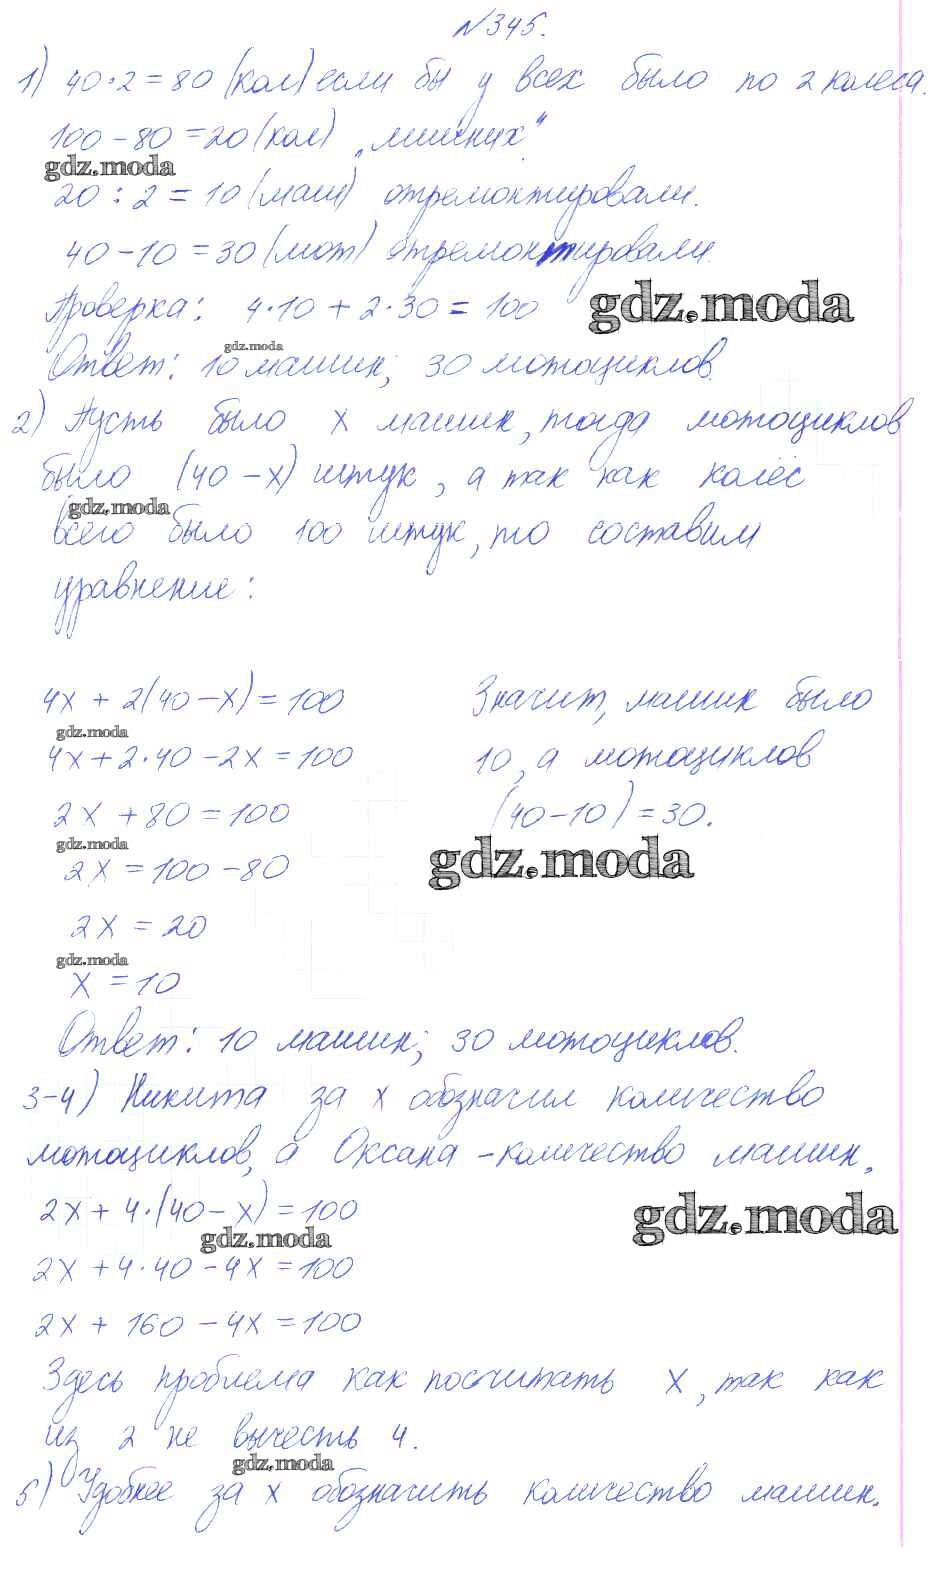 №345.
1) 40·2=80 (кол) если бы у всех было по 2 колеса.
100-80=20 (кол) „лишних“
gdz.moda
20:2=10 (маш) отремонтировали.
40-10=30 (мот) отремонтировали.
Проверка: 4·10+2·30=100
gdz.moda
gdz.moda
Ответ: 10 машин; 30 мотоциклов.
2) Пусть было x машин, тогда мотоциклов
было (40-x) штук, а так как колёс
gdz.moda
всего было 100 штук, то составим
уравнение:
4x+2(40-x)=100
Значит, машин было
gdz.moda
4x+2·40-2x=100
10, а мотоциклов
2x+80=100
(40-10)=30.
gdz.moda
gdz.moda
2x=100-80
2x=20
gdz.moda
x=10
Ответ: 10 машин; 30 мотоциклов.
3-4) Никита за x обозначил количество
мотоциклов, а Оксана - количество машин.
2x+4·(40-x)=100
gdz.moda
gdz.moda
2x+4·40-4x=100
2x+160-4x=100
Здесь проблема как посчитать x, так как
из 2 не вычесть 4.
gdz.moda
5) Удобнее за x обозначить количество машин.